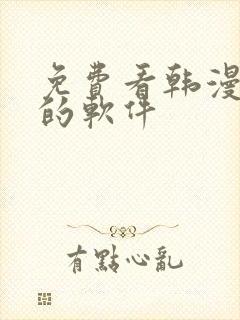 免費看韩漫
的軟件
有點心亂